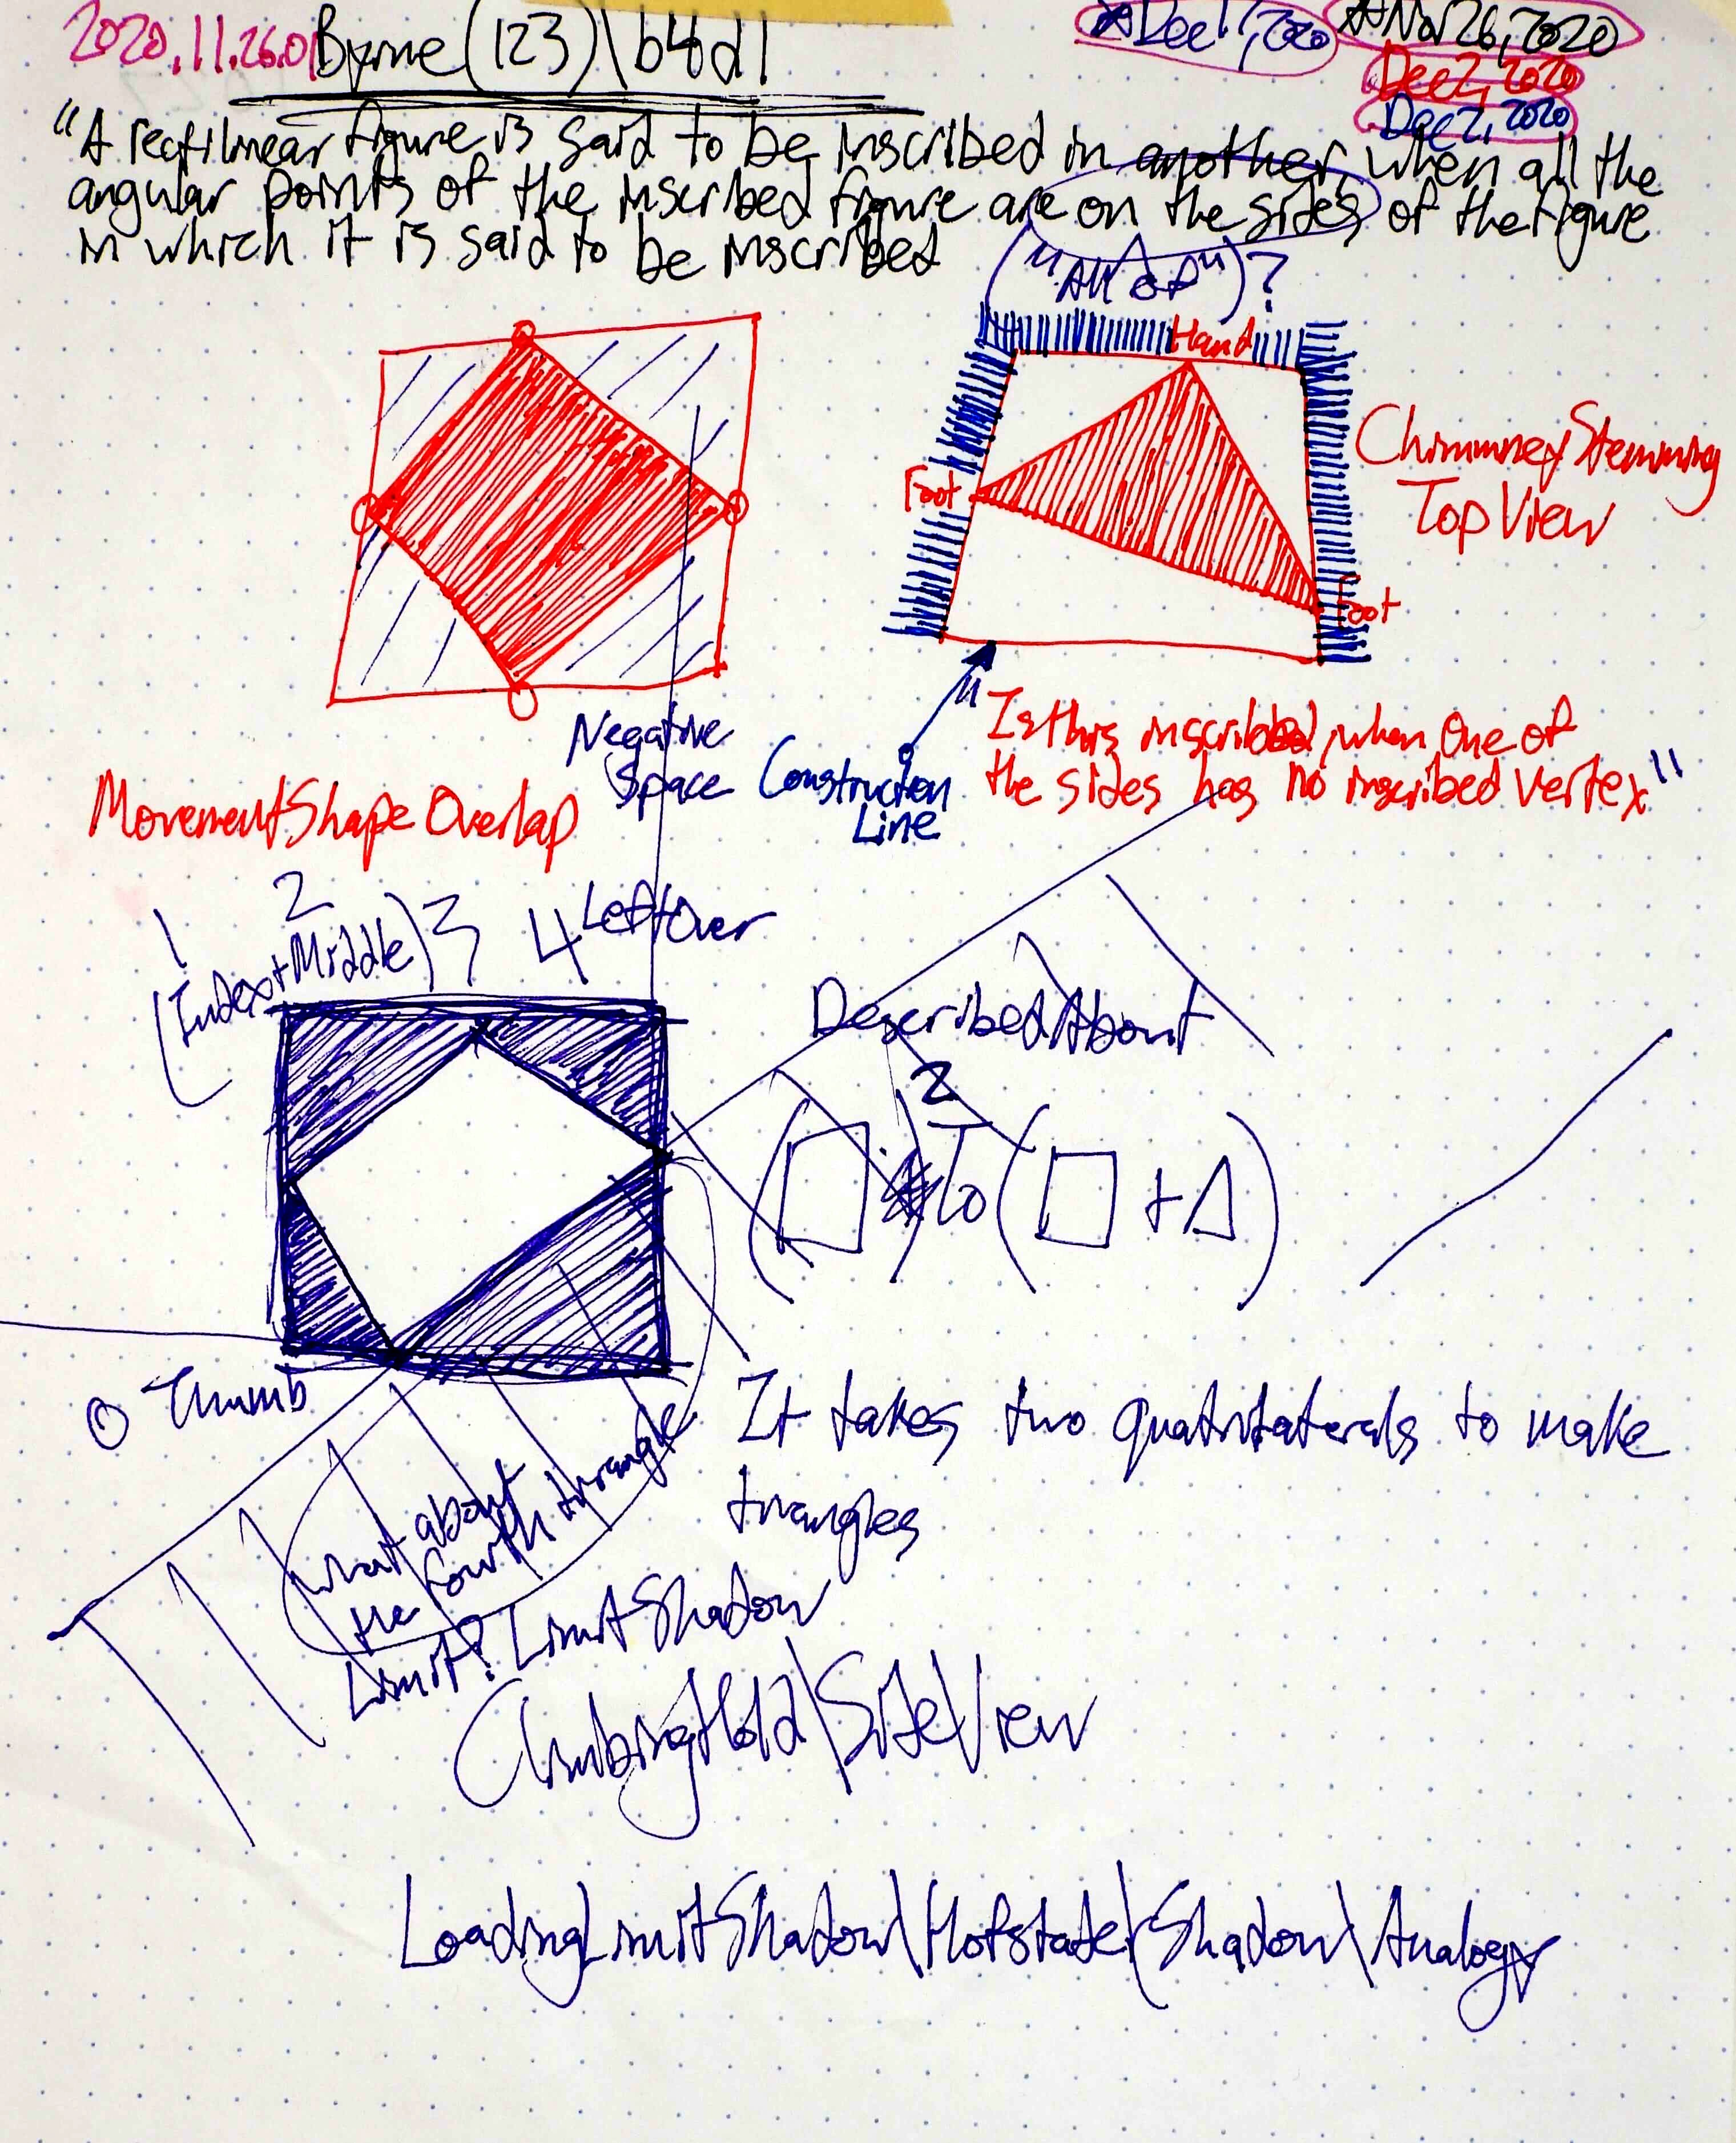 2020.11.26.01 Byrne(123)\b4d1
Dec17,2020
Nov26,2020
Dec2,2020
Dec2,2020
"A rectilinear figure is said to be inscribed in another, when all the
angular points of the inscribed figure are on the sides of the figure
in which it is said to be inscribed
("All of")?
Hand
Foot
Foot
ChimneyStemming
TopView
Negative
Space
Construction
Line
"Is this inscribed, when one of
the sides has no inscribed vertex"
MovementShapeOverlap
1 2 3 4 LeftOver
(Index+Middle)
DescribedAbout
2
(□) to (□ + Δ)
0 Thumb
It takes two quadrilaterals to make
triangles
What about
the fourth triangle
Limit? LimitShadow
ClimbingHold\SideView
LoadingLimitShadow\Hofstader\Shadow\Analogy